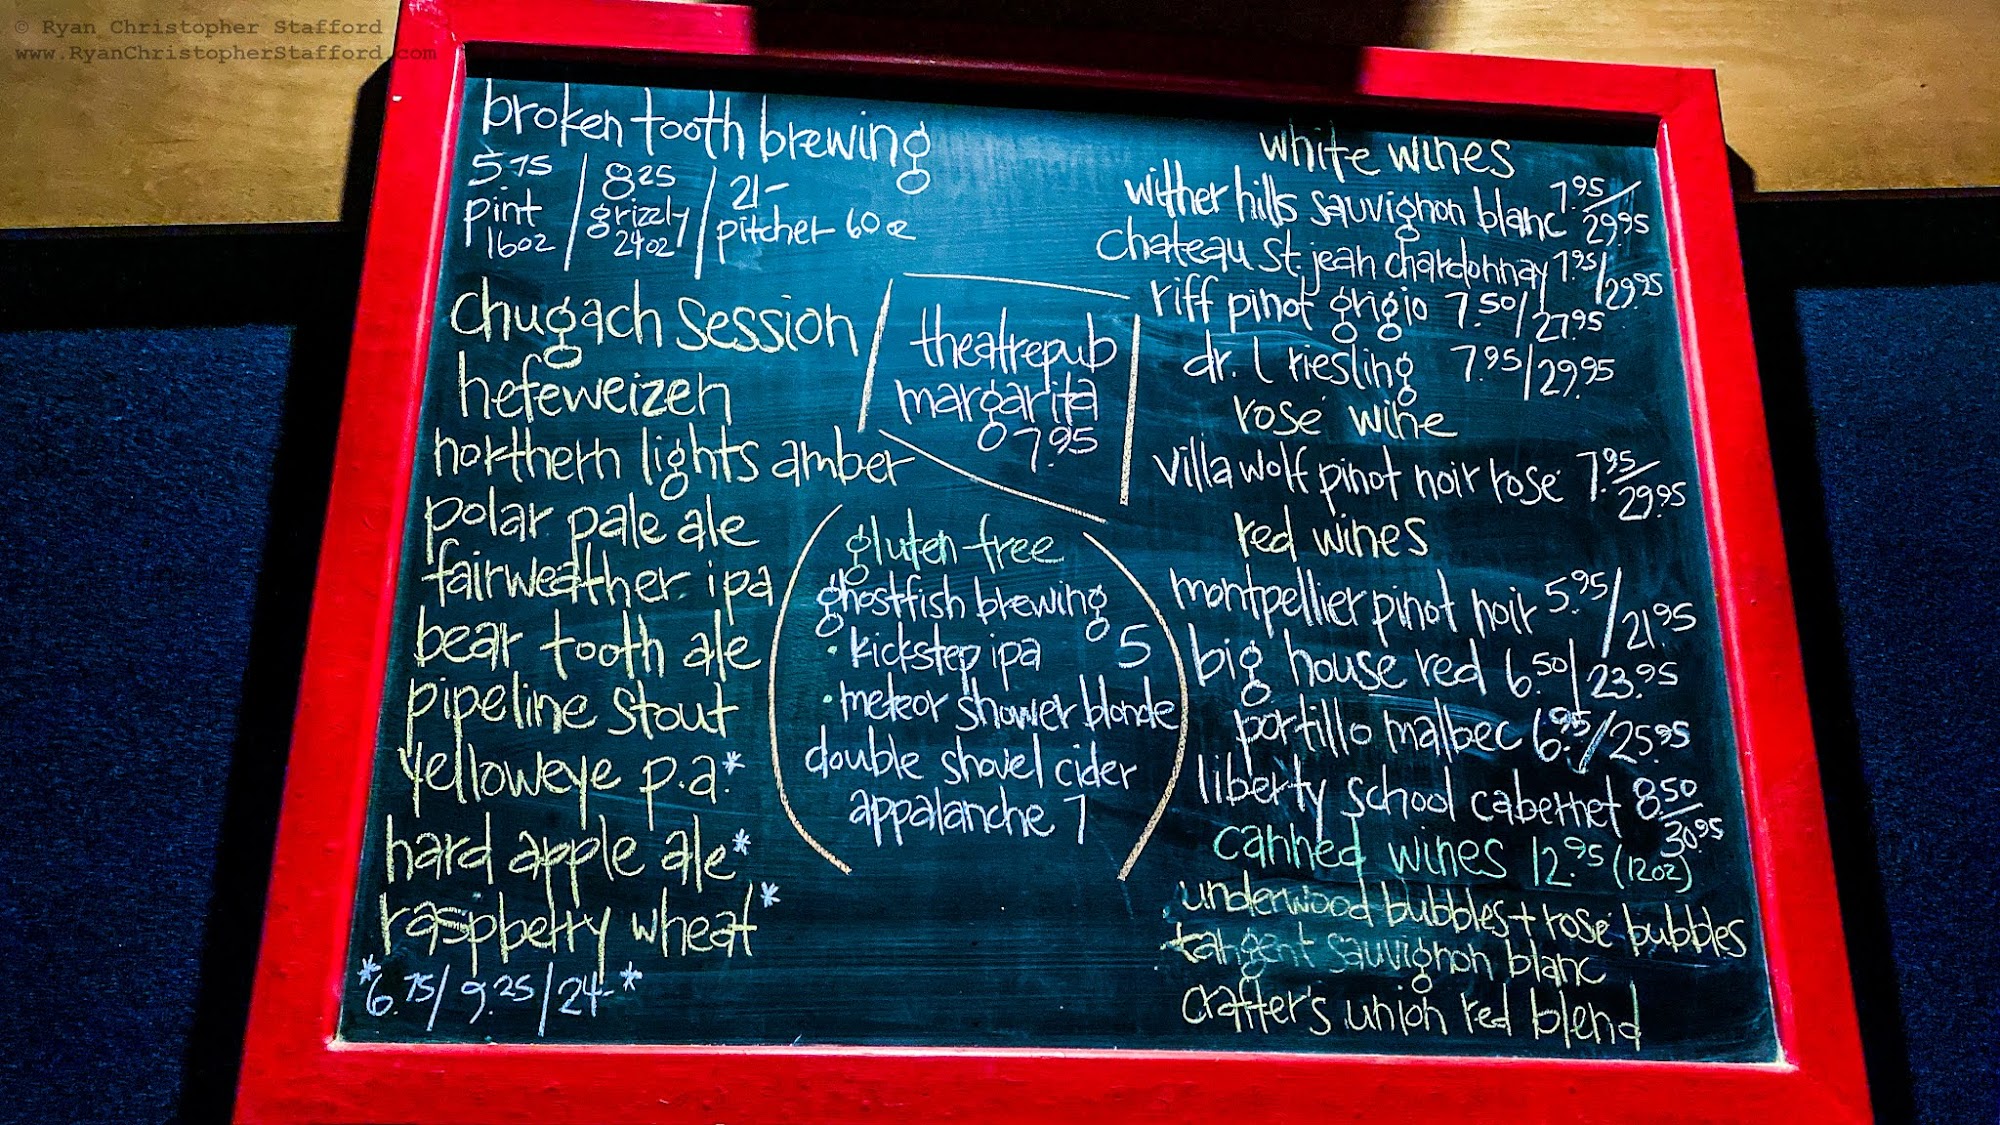 © Ryan Christopher Stafford
www.RyanChristopherStafford.com
broken tooth brewing
5.75 / 8.25 / 21-
pint / grizzly / pitcher 60oz
16oz 24oz
chugach session
hefeweizen
northern lights amber
polar pale ale
fairweather ipa
bear tooth ale
pipeline stout
yelloweye p.a.*
hard apple ale*
raspberry wheat*
*6.75/9.25/24-*
theatrepub
margarita
7.95
gluten free
ghostfish brewing
· kickstep ipa 5
· meteor shower blonde
double shovel cider
appalanche 7
white wines
wither hills sauvignon blanc 7.95/29.95
chateau st. jean chardonnay 7.95/29.95
riff pinot grigio 7.50/27.95
dr. l riesling 7.95/29.95
rosé wine
villa wolf pinot noir rosé 7.95/29.95
red wines
montpellier pinot noir 5.95/21.95
big house red 6.50/23.95
portillo malbec 6.95/25.95
liberty school cabernet 8.50/30.95
canned wines 12.95 (12oz)
underwood bubbles + rosé bubbles
tangent sauvignon blanc
crafter's union red blend